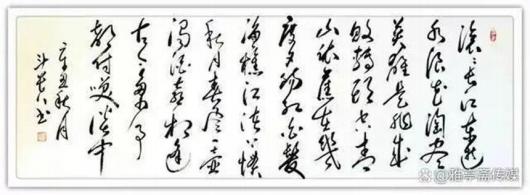 滚滚长江东逝
水浪花淘尽
英雄是非成
败转头空青
山依旧在几
度夕阳红白发
渔樵江渚上惯
秋月春风一壶
浊酒喜相逢
古今多少事
都付笑谈中
辛丑秋月
书
@雅亭斋传媒